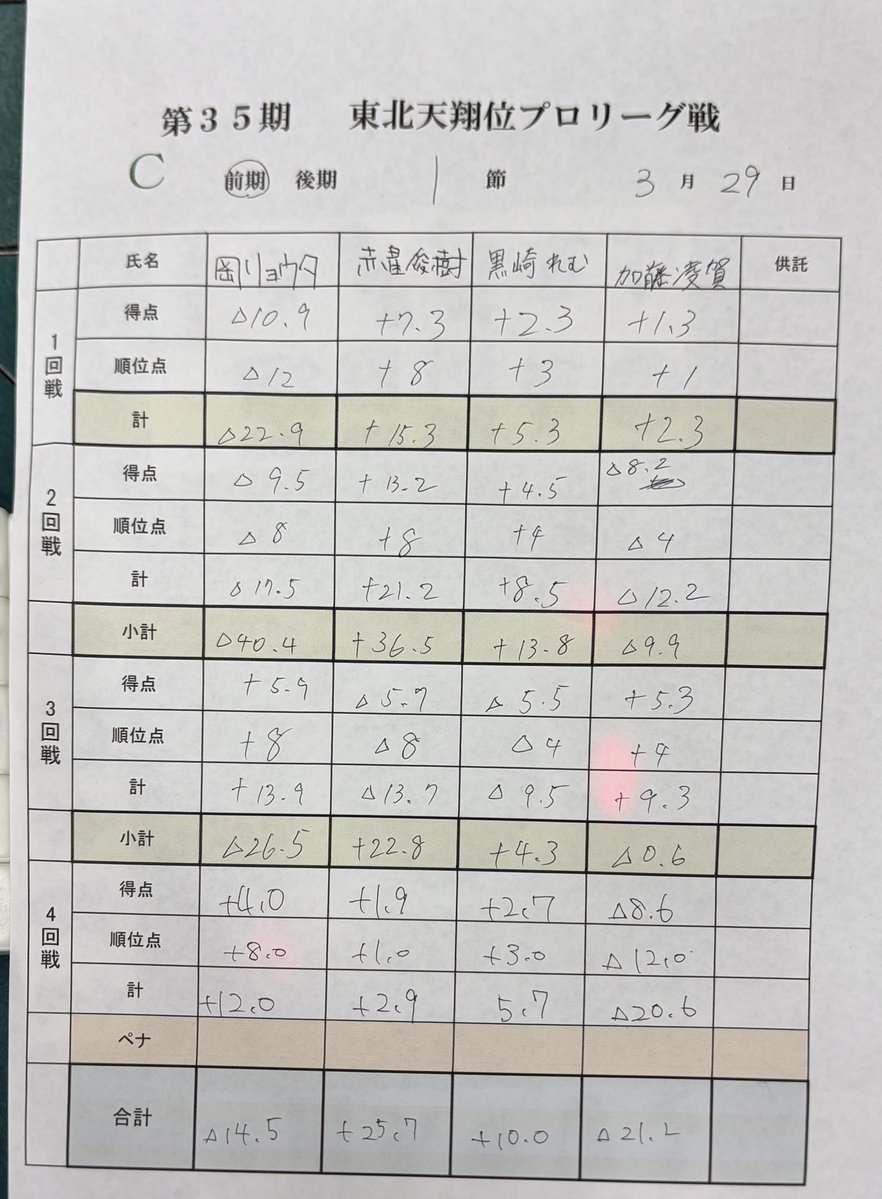 第35期 東北天翔位プロリーグ戦
C 前期 後期 1 節 3 月 29 日
氏名 岡リョウタ 赤星俊樹 黒崎れむ 加藤凌賀 供託
1回戦
得点 △10.9 +7.3 +2.3 +1.3
順位点 △12 +8 +3 +1
計 △22.9 +15.3 +5.3 +2.3
2回戦
得点 △9.5 +13.2 +4.5 △8.2
順位点 △8 +8 +4 △4
計 △17.5 +21.2 +8.5 △12.2
小計 △40.4 +36.5 +13.8 △9.9
3回戦
得点 +5.9 △5.7 △5.5 +5.3
順位点 +8 △8 △4 +4
計 +13.9 △13.7 △9.5 +9.3
小計 △26.5 +22.8 +4.3 △0.6
4回戦
得点 +4.0 +1.9 +2.7 △8.6
順位点 +8.0 +1.0 +3.0 △12.0
計 +12.0 +2.9 5.7 △20.6
ペナ
合計 △14.5 +25.7 +10.0 △21.2